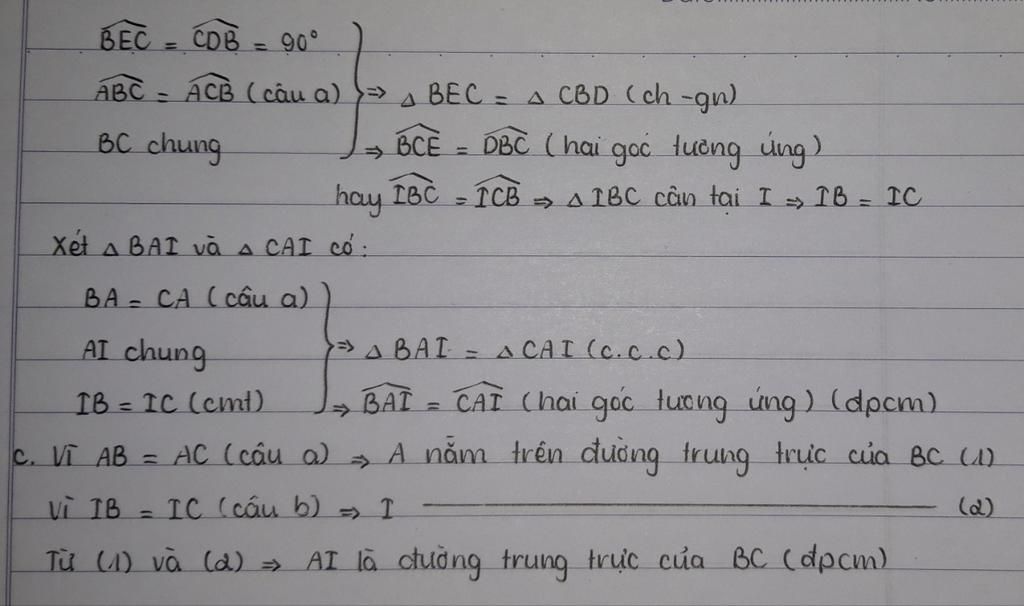 BEC = CDB = 90°
ABC = ACB (câu a) ⇒ △ BEC = △ CBD (ch - gn)
BC chung ⇒ BCE = DBC (hai goc tương ứng)
hay IBC = ICB ⇒ △ IBC cân tại I ⇒ IB = IC
Xét △ BAI và △ CAI có:
BA = CA (câu a)
AI chung ⇒ △ BAI = △ CAI (c.c.c)
IB = IC (cmt) ⇒ BAI = CAI (hai góc tương ứng) (dpcm)
c. Vì AB = AC (câu a) ⇒ A nằm trên đường trung trực của BC (1)
Vì IB = IC (câu b) ⇒ I ——— (2)
Từ (1) và (2) ⇒ AI là đường trung trực của BC (dpcm)